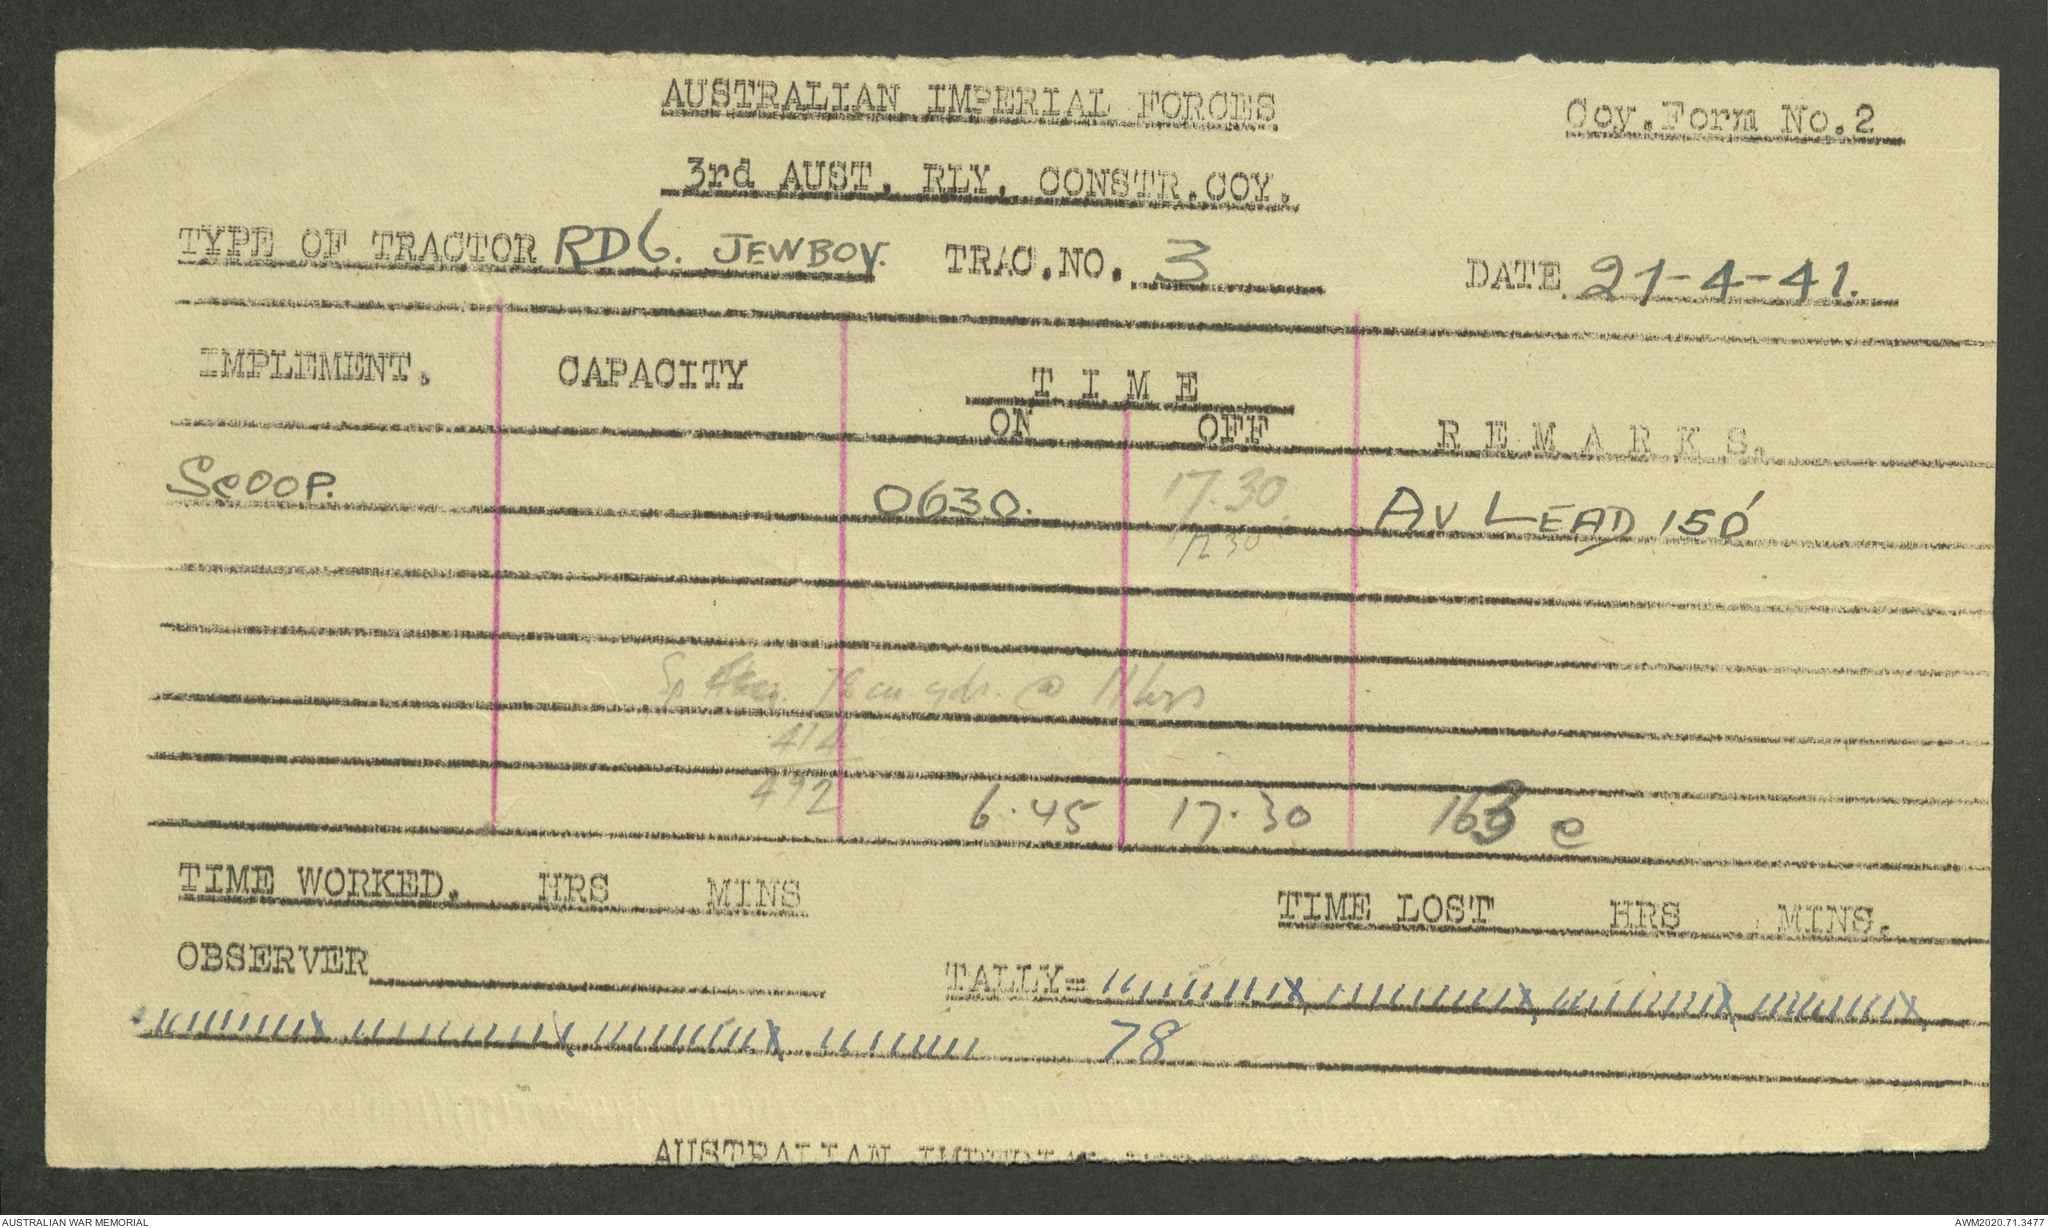 AUSTRALIAN IMPERIAL FORCES
Coy.Form No.2
3rd AUST. RLY. CONSTR.COY.
TYPE OF TRACTOR RD6. JEWBOY. TRAC.NO. 3 DATE 21-4-41.
IMPLEMENT. CAPACITY T I M E
ON OFF R E M A R K S.
SCOOP. 0630. 17.30 AV LEAD 150'
17 30
78 cu yds. @ 11 hrs
414
492
6.45 17.30 163 e
TIME WORKED. HRS MINS TIME LOST HRS MINS.
OBSERVER TALLY=
78
AUSTRALIAN IMPERIAL
AUSTRALIAN WAR MEMORIAL
AWM2020.71.3477